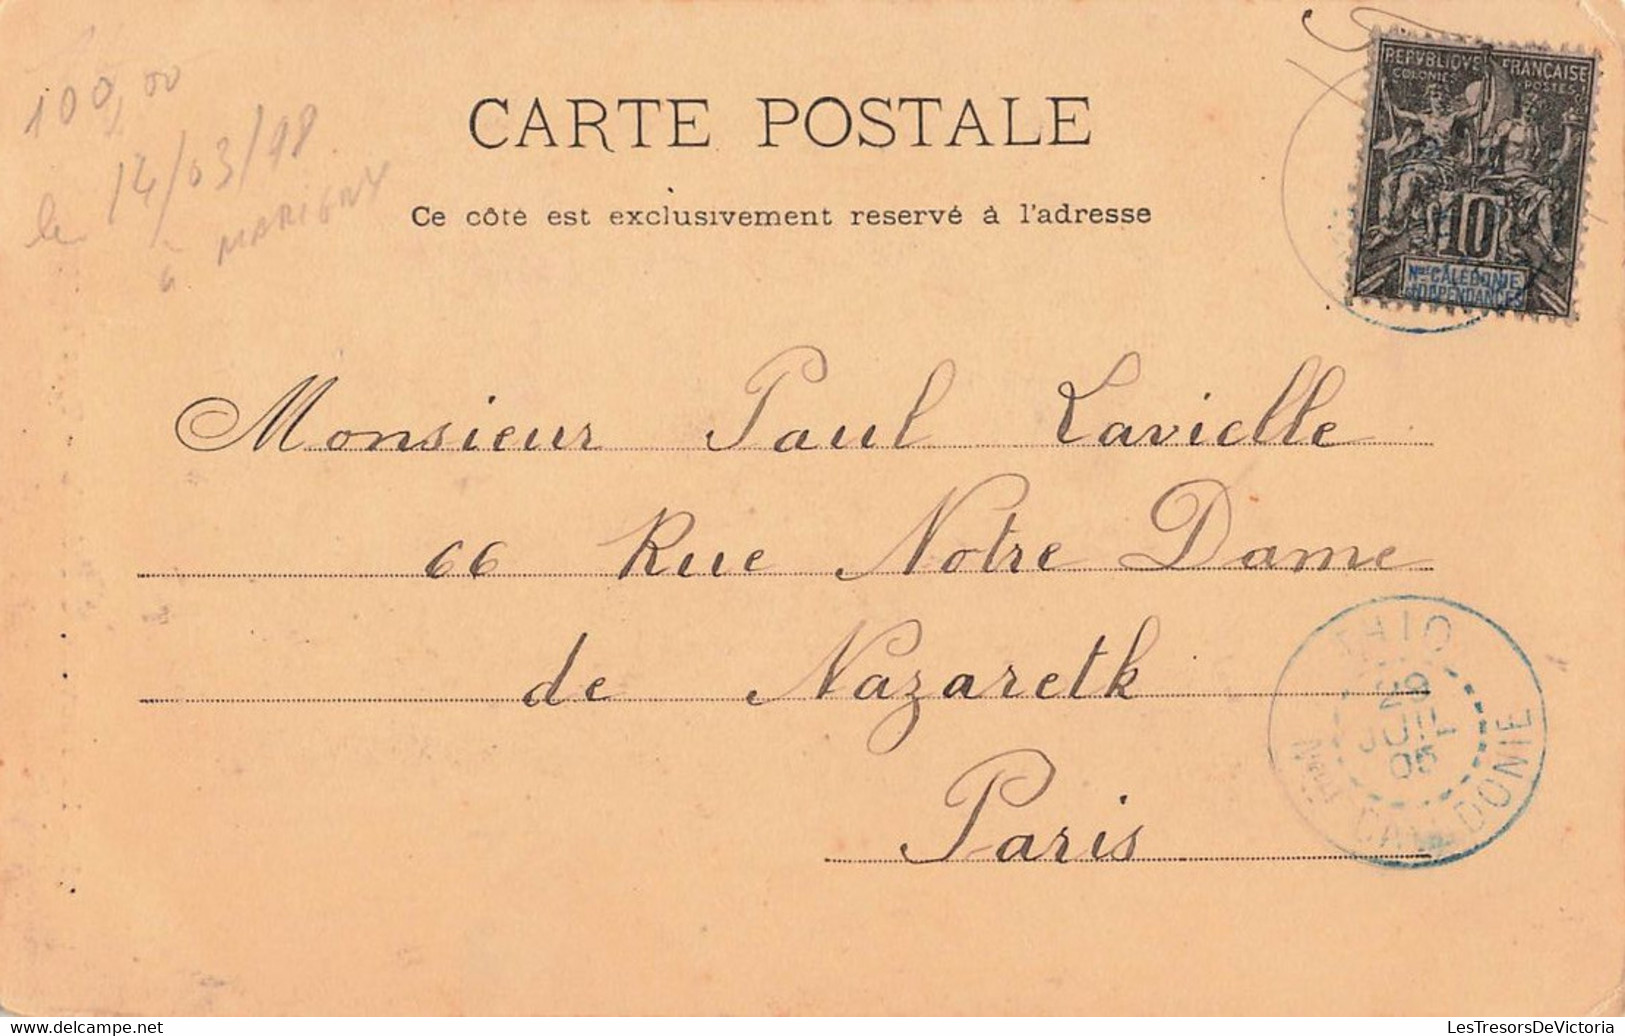 100,00
le 14/03/98
à MARIGNY
CARTE POSTALE
Ce côté est exclusivement reservé à l'adresse
REPVBLIQVE FRANÇAISE
COLONIES POSTES
10
Nlle CALÉDONIE
et DÉPENDANCES
Monsieur Paul Lavielle
66 Rue Notre Dame
de Nazareth
Paris
THIO
29
JUIL
05
Nlle CALEDONIE
www.delcampe.net
LesTresorsDeVictoria